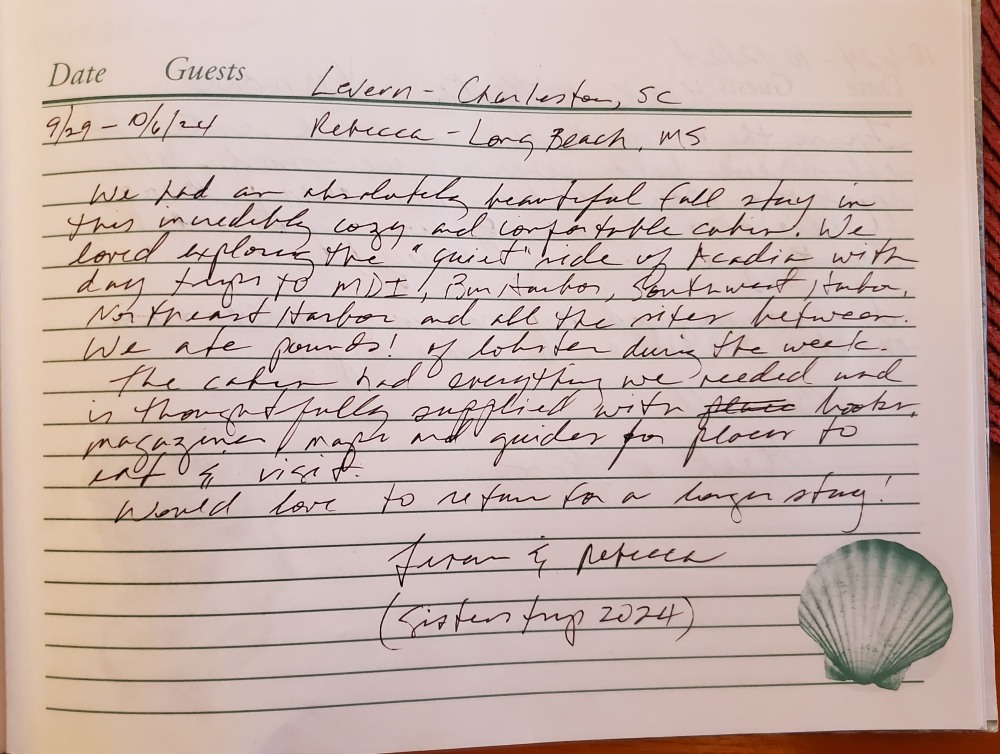 Date Guests
LeVern - Charleston, SC
9/29 - 10/6/24 Rebecca - Long Beach, MS
We had an absolutely beautiful fall stay in
this incredibly cozy and comfortable cabin. We
loved exploring the "quiet" side of Acadia with
day trips to MDI, Bar Harbor, Southwest Harbor,
Northeast Harbor and all the sites between.
We ate pounds! of lobster during the week.
The cabin had everything we needed and
is thoughtfully supplied with books,
magazines, maps and guides for places to
eat & visit.
Would love to return for a longer stay!
& Rebecca
(Sisters trip 2024)